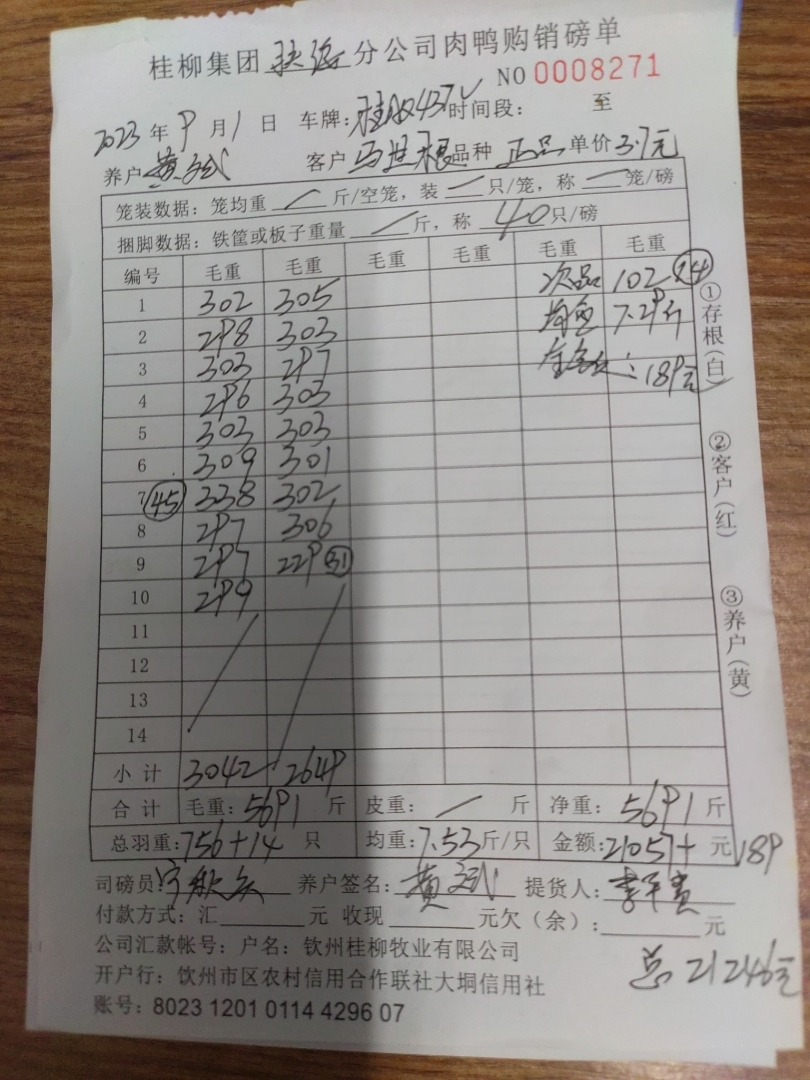 桂柳集团 钦海 分公司肉鸭购销磅单
NO 0008271
2023 年 9 月 1 日 车牌: 时间段: 至
养户 黄斌 客户 品种 正品 单价 3.7元
笼装数据: 笼均重 / 斤/空笼, 装 一 只/笼, 称 一 笼/磅
捆脚数据: 铁筐或板子重量 / 斤, 称 40 只/磅
编号 毛重 毛重 毛重 毛重 毛重 毛重
1 302 305 次品 102 ⑭
2 298 303 均重 7.29斤
3 303 297 金额: 189元
4 296 303
5 303 303
6 309 301
7 ㊺ 338 302
8 297 306
9 297 229 ㉛
10 299
11
12
13
14
小计 3042 2649
合计 毛重: 5691 斤 皮重: / 斤 净重: 5691 斤
总羽重: 756+14 只 均重: 7.53 斤/只 金额: 21057+ 元 189
司磅员: 养户签名: 黄斌 提货人:
付款方式: 汇 元 收现 元欠(余): 元
公司汇款帐号: 户名: 钦州桂柳牧业有限公司
开户行: 钦州市区农村信用合作联社大垌信用社
总 21246元
账号: 8023 1201 0114 4296 07
①存根(白)
②客户(红)
③养户(黄)